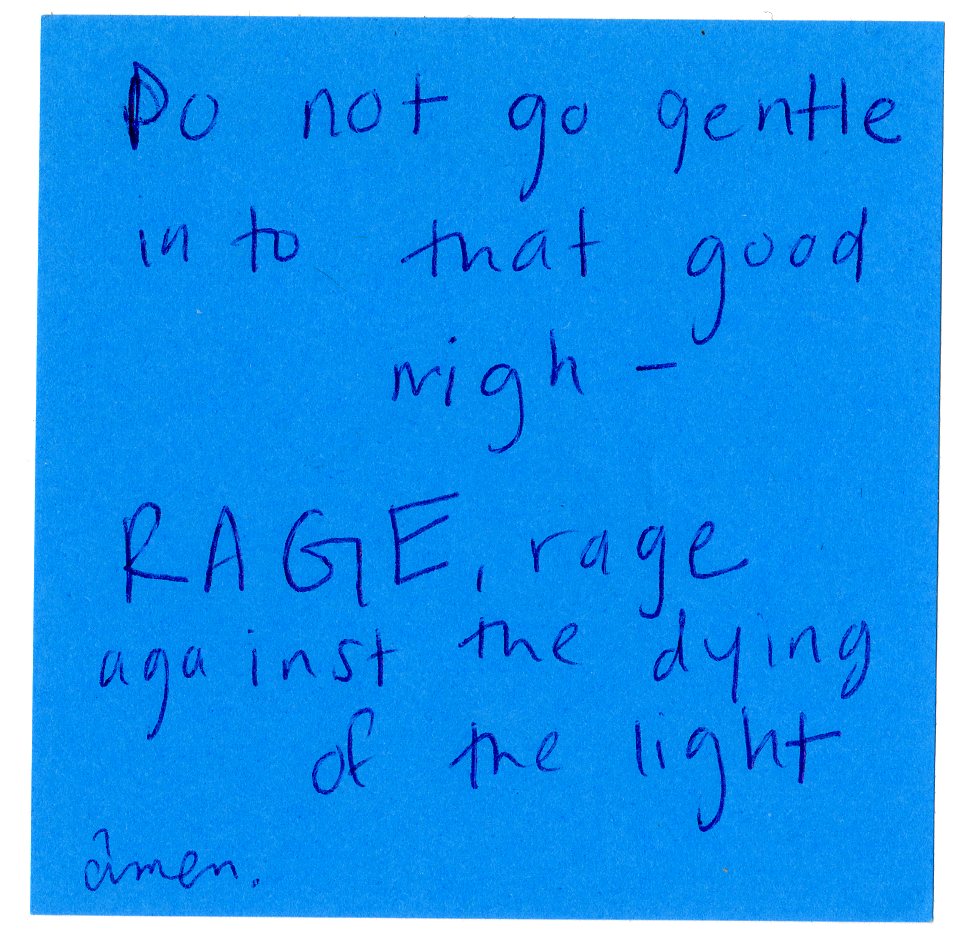 Do not go gentle
in to that good
nigh -
RAGE, rage
against the dying
of the light
amen.